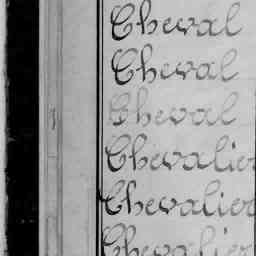 Cheval
Cheval
Cheval
Chevalier
Chevalier
Chevalier